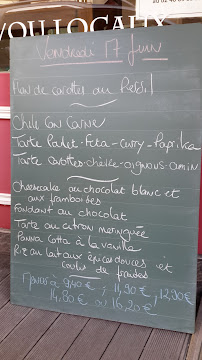 VOU LOCAUX
Vendredi 17 Juin
Flan de carottes au Persil
Chili Con Carne
Tarte Poulet-Feta-Curry-Paprika
Tarte Carottes-chèvre-oignons-cumin
Cheesecake au chocolat blanc et
aux framboises
Fondant au chocolat
Tarte au citron meringuée
Panna Cotta à la vanille
Riz au lait aux épices douces et
coulis de fraises
Menus à 9,40€, 11,90€, 12,90€
14,80€ ou 16,20€